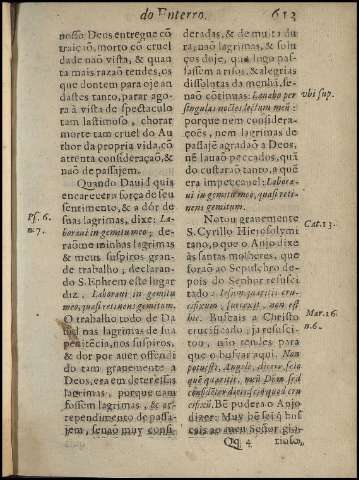 do Enterro. 613
nosso Deos entregue cõ
traiçaõ, morto cõ cruel
dade naõ vista, & quan
ta mais razaõ tendes, os
que dontem para oje an
dastes tanto, parar ago-
ra à vista de spectaculo
tam lastimoso, chorar
morte tam cruel do Au
thor da propria vida, cõ
attenta consideraçaõ, &
naõ de passajem.
Quando David quis
encarecer a força de seu
sentimento, & a dòr de
suas lagrimas, dixe: La-
boravi in gemitu meo; de-
raõme minhas lagrimas
& meus suspiros gran-
de trabalho; declaran-
do S. Ephrem este lugar
diz. Laboravi in gemitu
meo, quasi retinens gemitum.
O trabalho todo de Da
vid nas lagrimas de sua
penitècia, nos suspiros,
& dor por auer offendi
do tam gravemente a
Deos, era em deter essas
lagrimas, porque nam
fossem lagrimas, & ar-
rependimento de passa-
jem, senaõ muy consi-
Ps. 6.
n. 7.
deradas, & de muita du
ra; naõ lagrimas, & solu
ços doje, que logo pas-
sassem a risos, & alegrias
dissolutas da menhã, se-
naõ côtinuas: Lavabo per
singulas noctes lectum meũ:
porque nem considera-
çoẽs, nem lagrimas de
passajẽ agradaõ a Deos,
nẽ lauaõ peccados, quã
do custaraõ tanto, a quẽ
era impeccavel: Labora-
vi in gemitu meo, quasi reti-
nens gemitum.
Notou gravemente
S. Cyrillo Hierosolymi
tano, o que o Anjo dixe
às santas molheres, que
foraõ ao Sepulchro de-
pois do Senhor resusci
tado: Iesum quæritis cru-
cifixum, surrexit, non est
hic. Buscais a Christo
crucificado, ja resusci-
tou, não tendes para
que o buscar aqui. Non
potuisti, Angele, dicere, scio
quẽ quæritis, meũ Dom
crucifixũ. Bẽ pudera o Anjo
dizer: Muy bẽ sei q̃ bus
cais ao meu Señor glo-
vbi sup.
Cat. 13.
Mar. 16.
n. 6.
Qq 4 rioso,